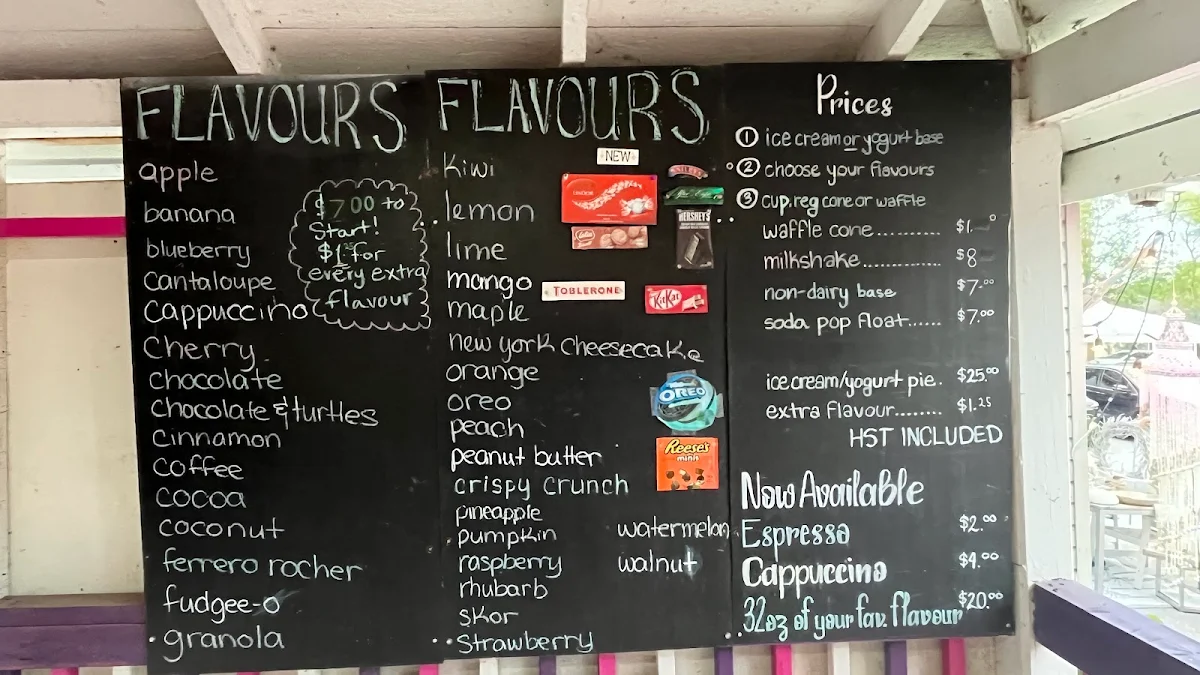 FLAVOURS
apple
banana
blueberry
cantaloupe
cappuccino
cherry
chocolate
chocolate & turtles
cinnamon
coffee
cocoa
coconut
ferrero rocher
fudgee-o
granola
$7.00 to
Start!
$1.25 for
every extra
flavour
FLAVOURS
kiwi
lemon
lime
mango
maple
new york cheesecake
orange
oreo
peach
peanut butter
crispy crunch
pineapple
pumpkin
raspberry
rhubarb
skor
Strawberry
watermelon
walnut
NEW
HERSHEY'S
Lotus
TOBLERONE
KitKat
OREO
Reese's
minis
Prices
1 ice cream or yogurt base
2 choose your flavours
3 cup, reg cone or waffle
waffle cone.......... $1.
milkshake............. $8
non-dairy base $7.00
soda pop float...... $7.00
ice cream/yogurt pie. $25.00
extra flavour........ $1.25
HST INCLUDED
Now Available
Espresso $2.00
Cappuccino $4.00
32oz of your fav. flavour $20.00